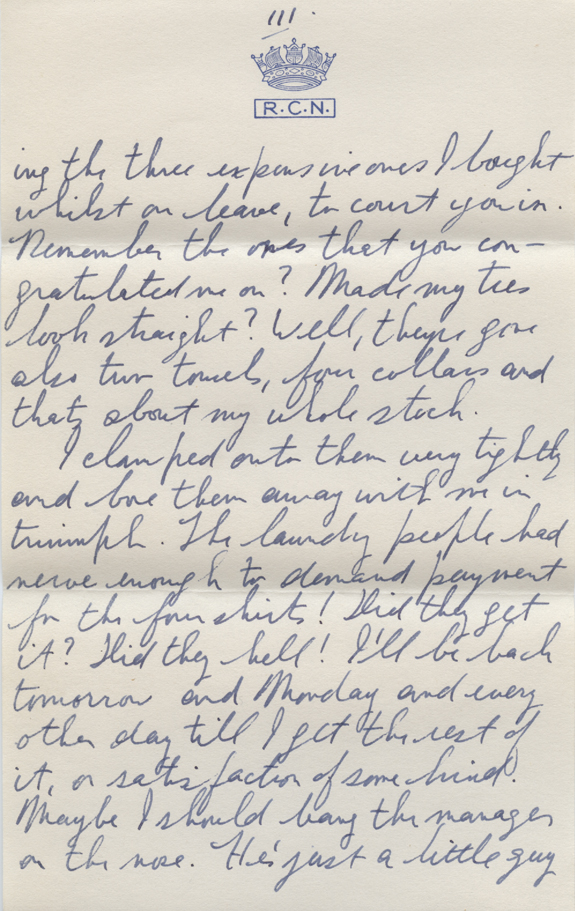 111.
R.C.N.
ing the three expensive ones I bought
whilst on leave, to court you in.
Remember the ones that you con-
gratulated me on? Made my ties
look straight? Well, theyre gone
also two towels, four collars and
thats about my whole stock.
I clamped onto them very tightly
and bore them away with me in
triumph. The laundry people had
nerve enough to demand payment
for the four shirts! Did they get
it? Did they hell! I'll be back
tomorrow and Monday and every
other day till I get the rest of
it, or satisfaction of some kind.
Maybe I should bang the manager
on the nose. He's just a little guy